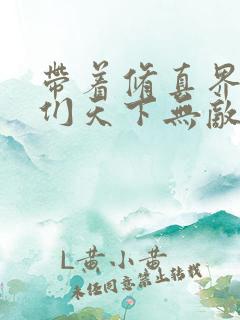 帶着脩真界
们天下無敵
L黄小黄
未经同意禁止转载